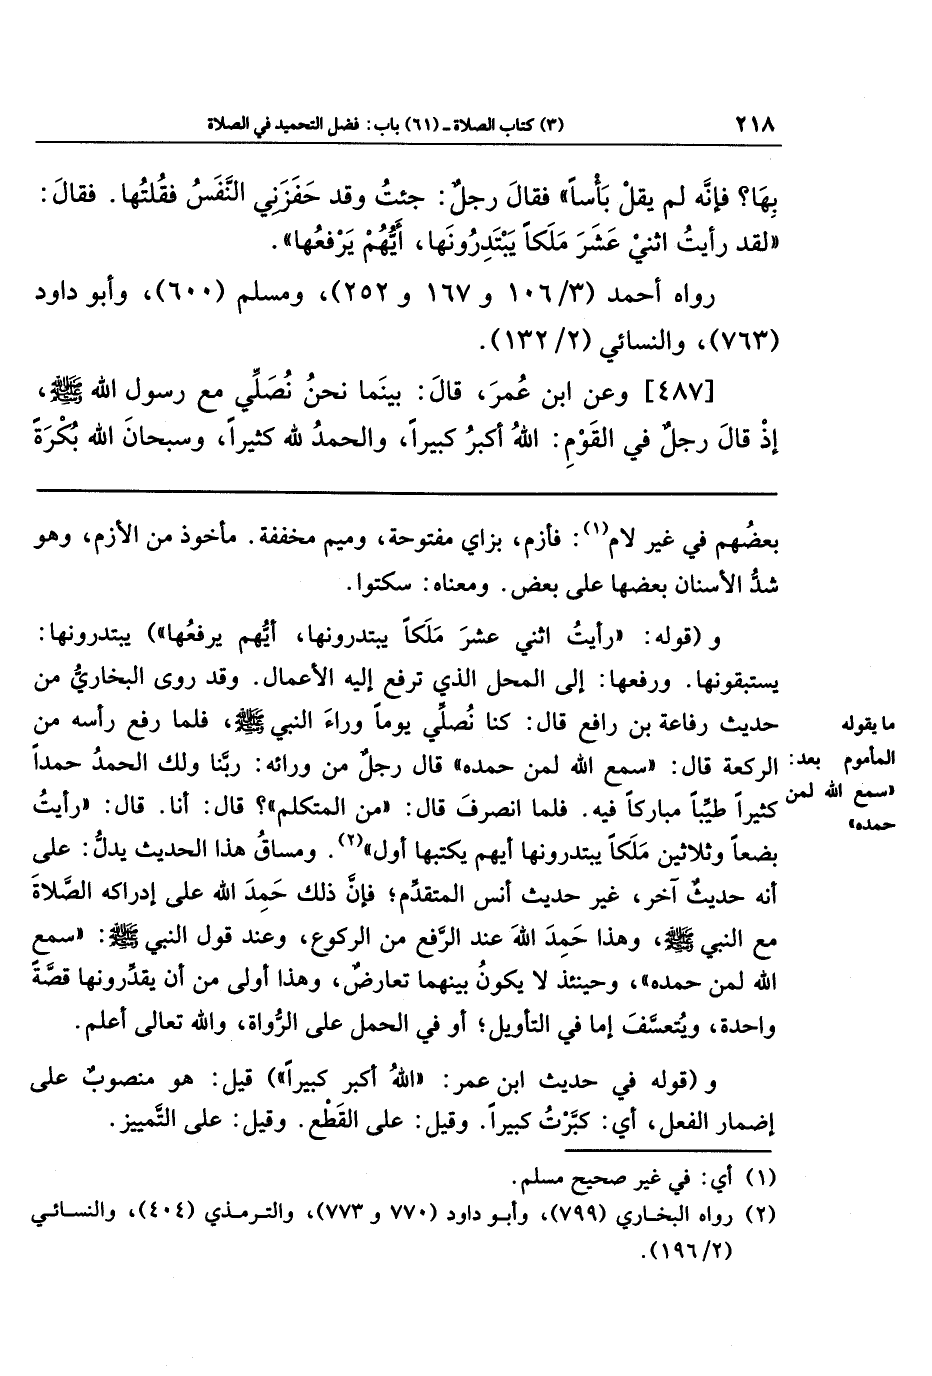 ٢١٨
(٣) كتاب الصلاة ـ (٦١) باب: فضل التحميد في الصلاة
بِهَا؟ فإنَّه لم يقلْ بَأْساً» فقالَ رجلٌ: جئتُ وقد حَفَزَنِي النَّفَسُ فقُلتُها. فقالَ:
«لقد رأيتُ اثنيْ عَشَرَ مَلَكاً يَبْتَدِرُونَها، أَيُّهُمْ يَرْفعُها».
رواه أحمد (١٠٦/٣ و ١٦٧ و ٢٥٢)، ومسلم (٦٠٠)، وأبو داود
(٧٦٣)، والنسائي (١٣٢/٢).
[٤٨٧] وعن ابن عُمرَ، قالَ: بينَما نحنُ نُصَلِّي مع رسول الله ﷺ،
إذْ قالَ رجلٌ في القَوْمِ: اللهُ أكبرُ كبيراً، والحمدُ لله كثيراً، وسبحانَ الله بُكْرَةً
بعضُهم في غير لام(١): فأزم، بزاي مفتوحة، وميم مخففة. مأخوذ من الأزم، وهو
شدُّ الأسنان بعضها على بعض. ومعناه: سكتوا.
و (قوله: «رأيتُ اثني عشرَ مَلَكاً يبتدرونها، أيُّهم يرفعُها») يبتدرونها:
يستبقونها. ورفعها: إلى المحل الذي ترفع إليه الأعمال. وقد روى البخاريُّ من
حديث رفاعة بن رافع قال: كنا نُصلِّي يوماً وراءَ النبي ﷺ، فلما رفع رأسه من
الركعة قال: «سمع الله لمن حمده» قال رجلٌ من ورائه: ربَّنا ولك الحمدُ حمداً
كثيراً طيِّباً مباركاً فيه. فلما انصرفَ قال: «من المتكلم»؟ قال: أنا. قال: «رأيتُ
بضعاً وثلاثين مَلَكاً يبتدرونها أيهم يكتبها أول»(٢). ومساقُ هذا الحديث يدلُّ: على
أنه حديثٌ آخر، غير حديث أنس المتقدِّم؛ فإنَّ ذلك حَمِدَ الله على إدراكه الصَّلاةَ
مع النبي ﷺ، وهذا حَمِدَ اللهَ عند الرَّفع من الركوع، وعند قول النبي ﷺ: «سمع
الله لمن حمده»، وحينئذ لا يكونُ بينهما تعارضٌ، وهذا أولى من أن يقدِّرونها قصَّةً
واحدة، ويُتعسَّفَ إما في التأويل؛ أو في الحمل على الرُّواة، والله تعالى أعلم.
و (قوله في حديث ابن عمر: «اللهُ أكبر كبيراً») قيل: هو منصوبٌ على
إضمار الفعل، أي: كبَّرْتُ كبيراً. وقيل: على القَطْع. وقيل: على التَّمييز.
ما يقوله
المأموم بعد:
«سمع الله لمن
حمده»
(١) أي: في غير صحيح مسلم.
(٢) رواه البخاري (٧٩٩)، وأبو داود (٧٧٠ و ٧٧٣)، والترمذي (٤٠٤)، والنسائي
(١٩٦/٢).